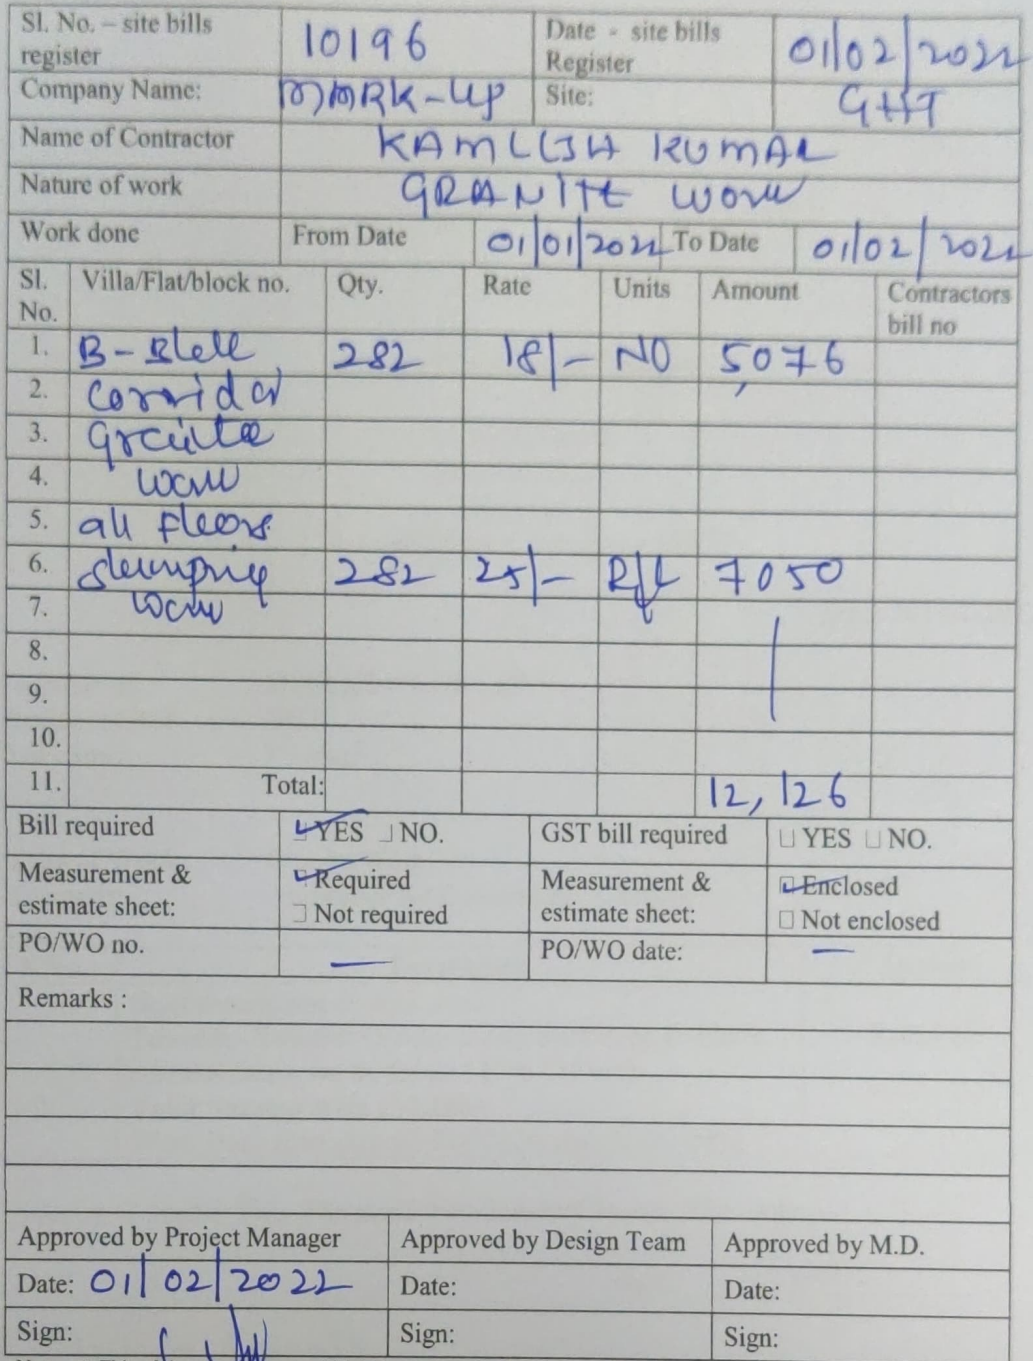 Sl. No. – site bills register 10196 Date - site bills Register 01/02/2022
Company Name: MMRK-UP Site: GHT
Name of Contractor KAMLESH KUMAR
Nature of work GRANITE WORK
Work done From Date 01/01/2022 To Date 01/02/2022
Sl. No. Villa/Flat/block no. Qty. Rate Units Amount Contractors bill no
1. B- 282 18/- NO 5,076
2. Corridor
3.
4. work
5. all floors
6. 282 25/- Rft 7050
7. work
8.
9.
10.
11. Total: 12,126
Bill required YES NO. GST bill required YES NO.
Measurement & estimate sheet: Required Not required Measurement & estimate sheet: Enclosed Not enclosed
PO/WO no. — PO/WO date: —
Remarks :
Approved by Project Manager Approved by Design Team Approved by M.D.
Date: 01/02/2022 Date: Date:
Sign: Sign: Sign: